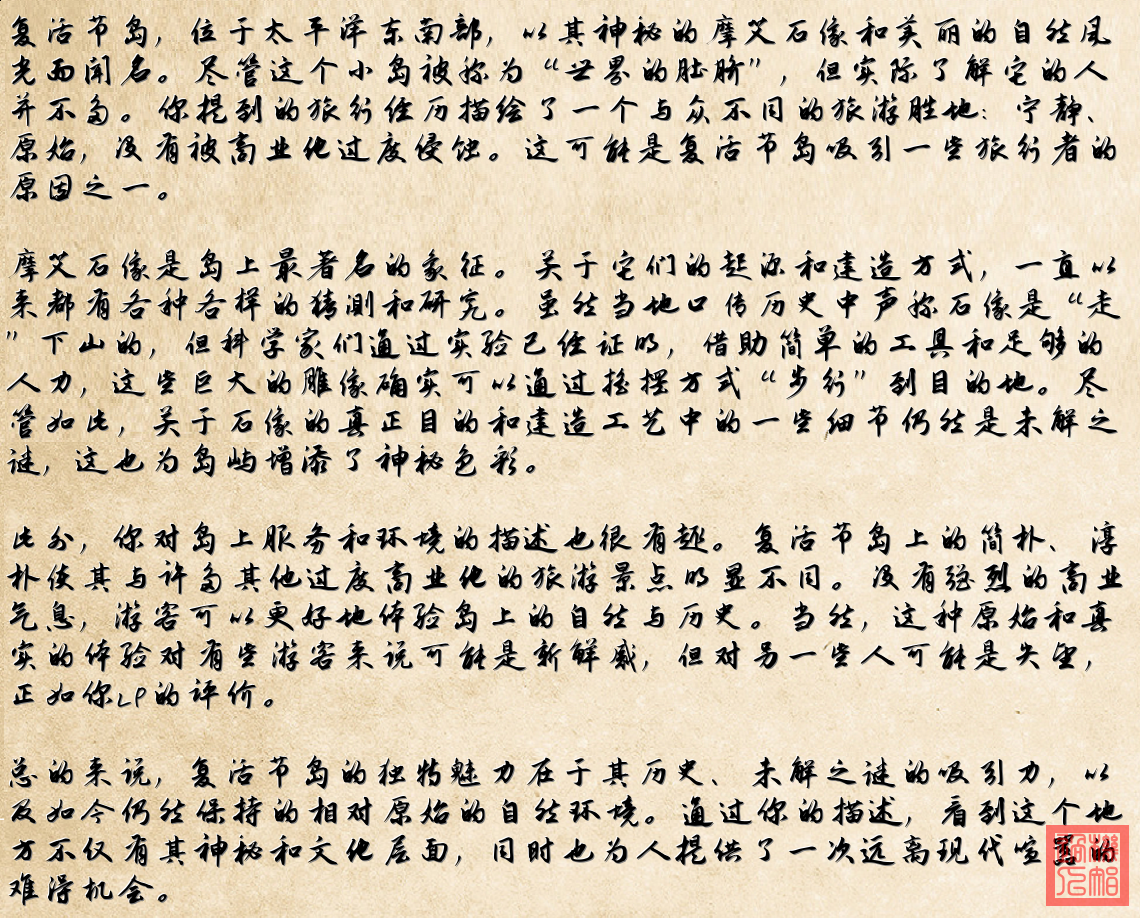 复活节岛，位于太平洋东南部，以其神秘的摩艾石像和美丽的自然风
光而闻名。尽管这个小岛被称为“世界的肚脐”，但实际了解它的人
并不多。你提到的旅行经历描绘了一个与众不同的旅游胜地：宁静、
原始，没有被商业化过度侵蚀。这可能是复活节岛吸引一些旅行者的
原因之一。
摩艾石像是岛上最著名的象征。关于它们的起源和建造方式，一直以
来都有各种各样的猜测和研究。虽然当地口传历史中声称石像是“走
”下山的，但科学家们通过实验已经证明，借助简单的工具和足够的
人力，这些巨大的雕像确实可以通过摇摆方式“步行”到目的地。尽
管如此，关于石像的真正目的和建造工艺中的一些细节仍然是未解之
谜，这也为岛屿增添了神秘色彩。
此外，你对岛上服务和环境的描述也很有趣。复活节岛上的简朴、淳
朴使其与许多其他过度商业化的旅游景点明显不同。没有强烈的商业
气息，游客可以更好地体验岛上的自然与历史。当然，这种原始和真
实的体验对有些游客来说可能是新鲜感，但对另一些人可能是失望，
正如你LP的评价。
总的来说，复活节岛的独特魅力在于其历史、未解之谜的吸引力，以
及如今仍然保持的相对原始的自然环境。通过你的描述，看到这个地
方不仅有其神秘和文化层面，同时也为人提供了一次远离现代喧嚣的
难得机会。